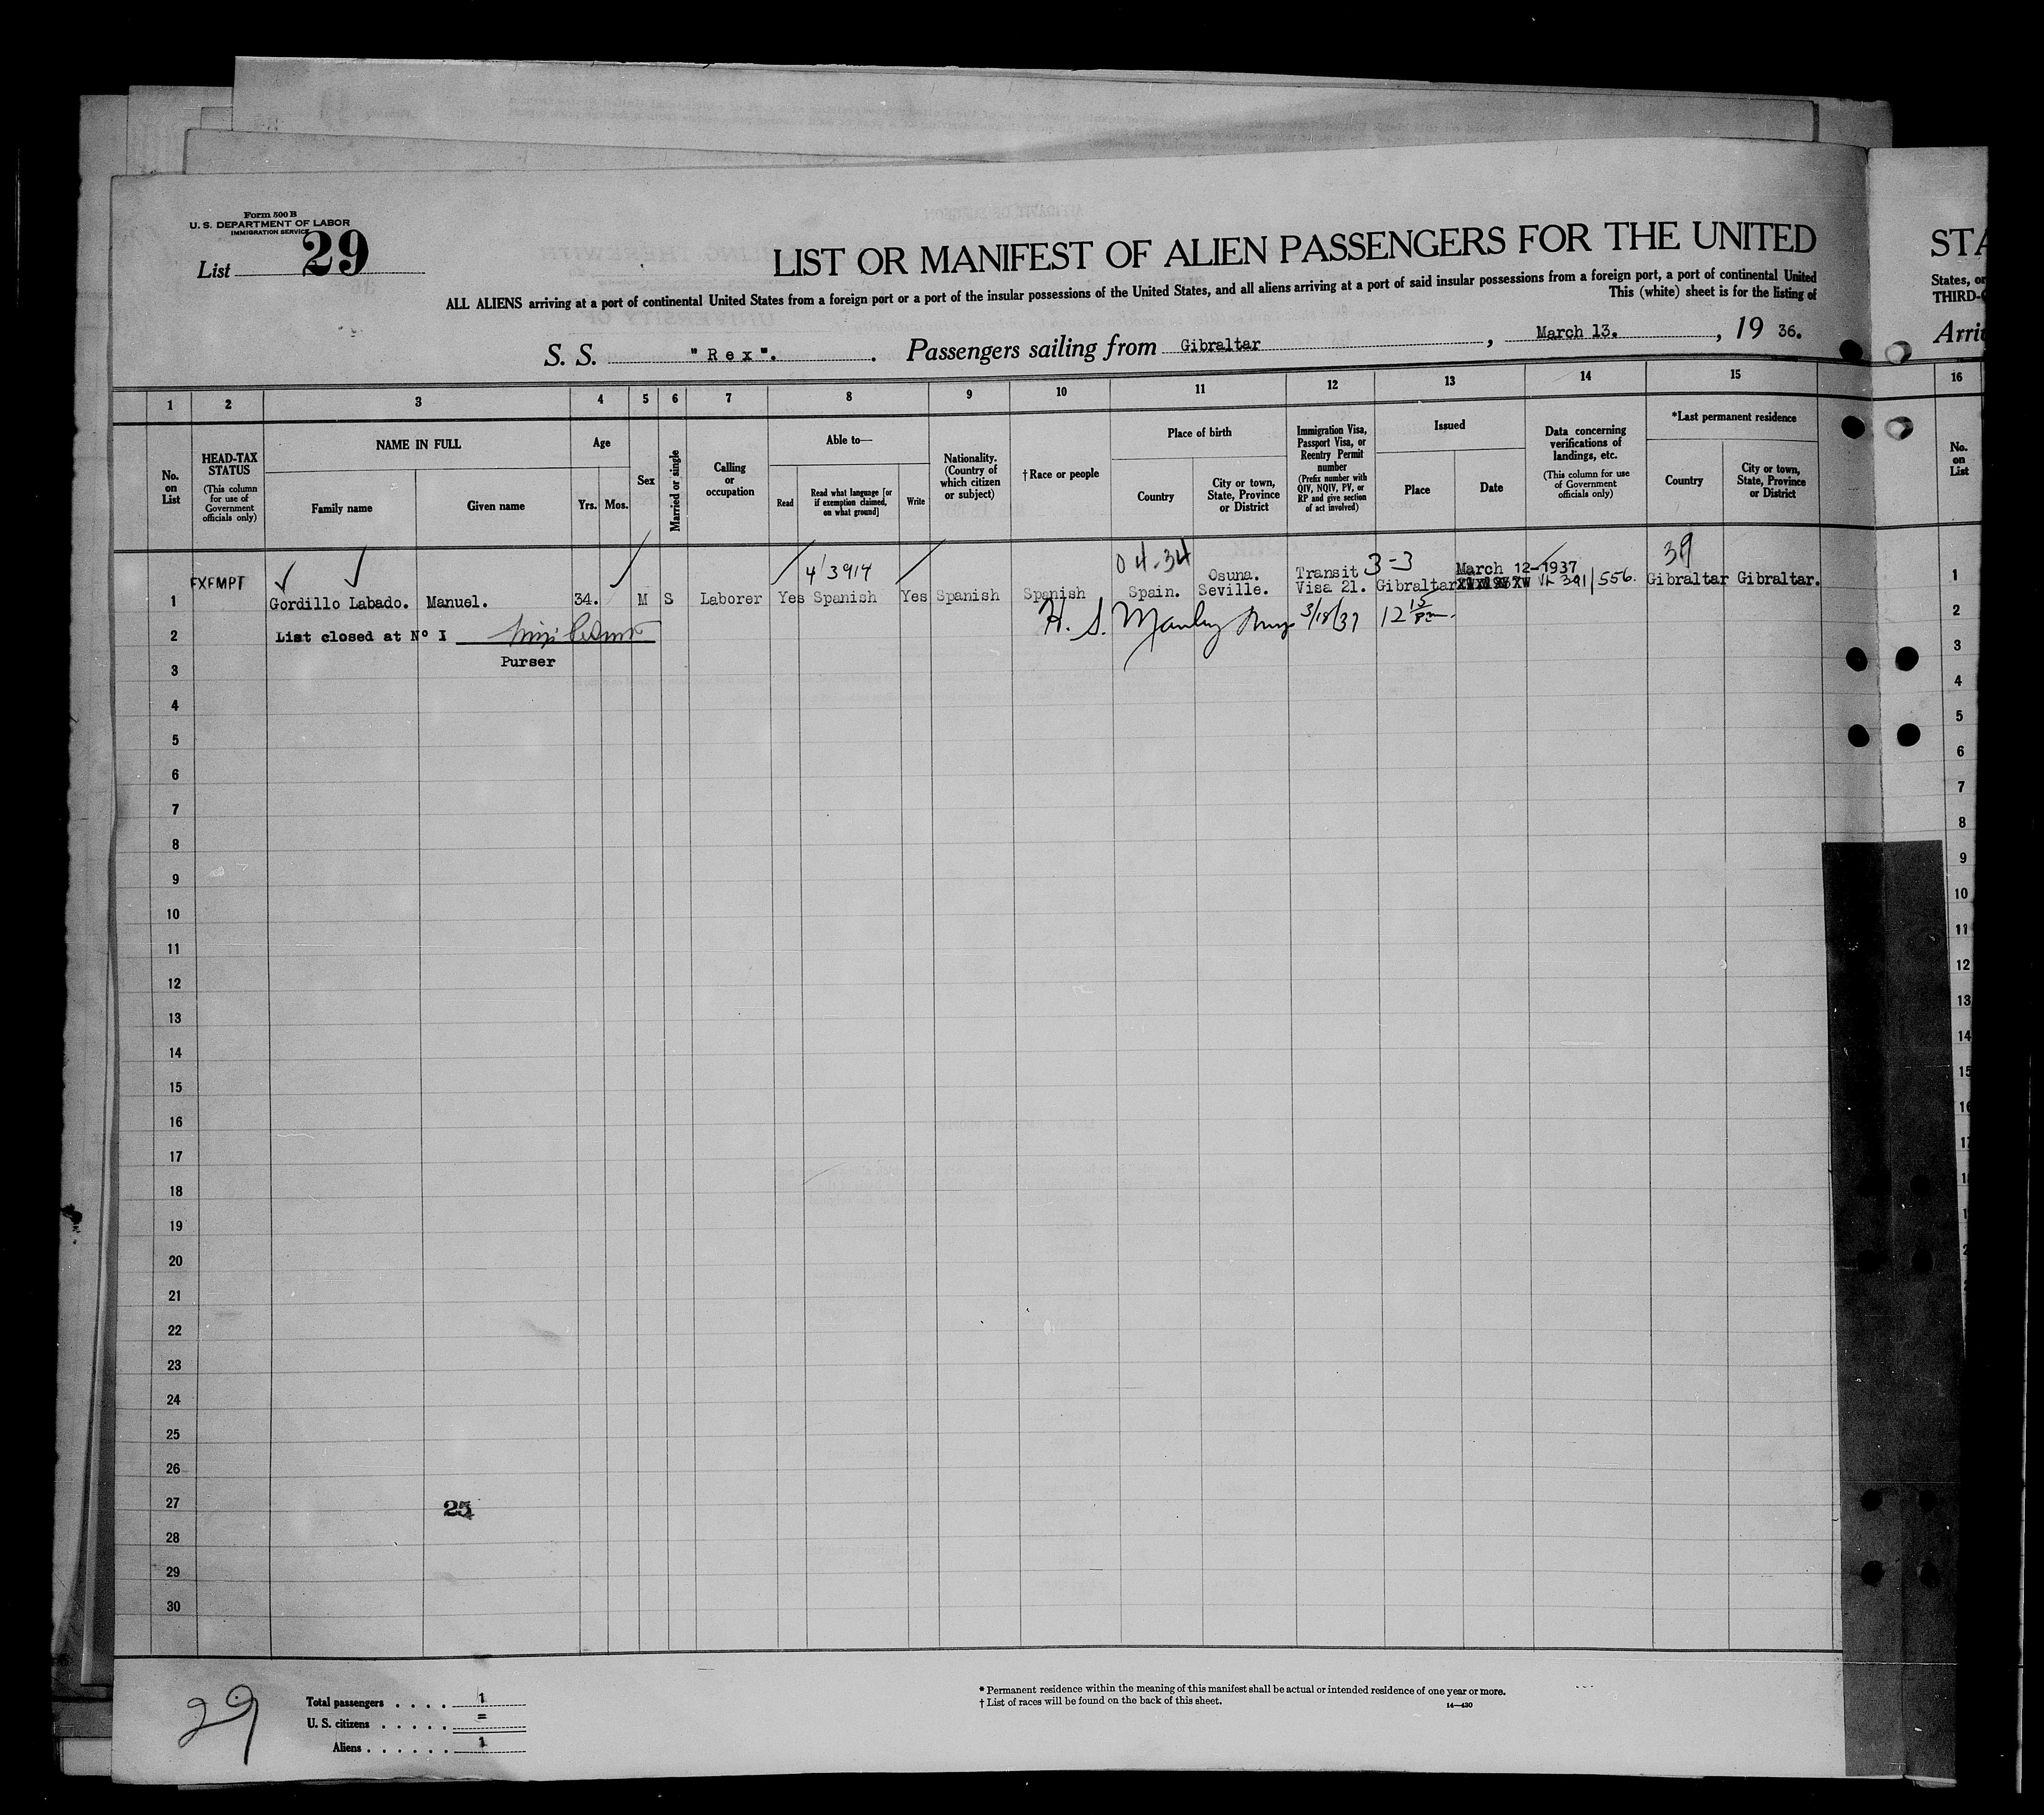 Form 500 B
U. S. DEPARTMENT OF LABOR
IMMIGRATION SERVICE
List 29
LIST OR MANIFEST OF ALIEN PASSENGERS FOR THE UNITED
ALL ALIENS arriving at a port of continental United States from a foreign port or a port of the insular possessions of the United States, and all aliens arriving at a port of said insular possessions from a foreign port, a port of continental United
This (white) sheet is for the listing of
S. S. "Rex". Passengers sailing from Gibraltar, March 13., 19 36.
STA
States, or
THIRD-C
Arri
1 2 3 4 5 6 7 8 9 10 11 12 13 14 15 16
No. on List
HEAD-TAX STATUS (This column for use of Government officials only)
NAME IN FULL
Family name
Given name
Age
Yrs.
Mos.
Sex
Married or single
Calling or occupation
Able to—
Read
Read what language [or if exemption claimed, on what ground]
Write
Nationality. (Country of which citizen or subject)
†Race or people
Place of birth
Country
City or town, State, Province or District
Immigration Visa, Passport Visa, or Reentry Permit number (Prefix number with QIV, NQIV, PV, or RP and give section of act involved)
Issued
Place
Date
Data concerning verifications of landings, etc. (This column for use of Government officials only)
*Last permanent residence
Country
City or town, State, Province or District
No. on List
4/3914 04-34 3-3 39
EXEMPT
1 Gordillo Labado. Manuel. 34. M S Laborer Yes Spanish Yes Spanish Spanish Spain. Osuna. Seville. Transit Visa 21. Gibraltar March 12-1937 391/556. Gibraltar Gibraltar. 1
2 List closed at Nº I H. S. Manley 3/18/37 12 15 2
3 Purser 3
4 4
5 5
6 6
7 7
8 8
9 9
10 10
11 11
12 12
13 13
14 14
15 15
16 16
17
18
19
20
21
22
23
24
25
26
27
28
29
30
29
Total passengers . . . . 1
U. S. citizens . . . . . =
Aliens . . . . . . 1
* Permanent residence within the meaning of this manifest shall be actual or intended residence of one year or more.
† List of races will be found on the back of this sheet.
14—430